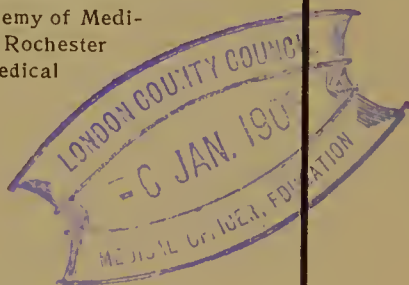 emy of Medi-
Rochester
edical
LONDON COUNTY COUNCIL
JAN. 190
MEDICAL OFFICER, EDUCATION